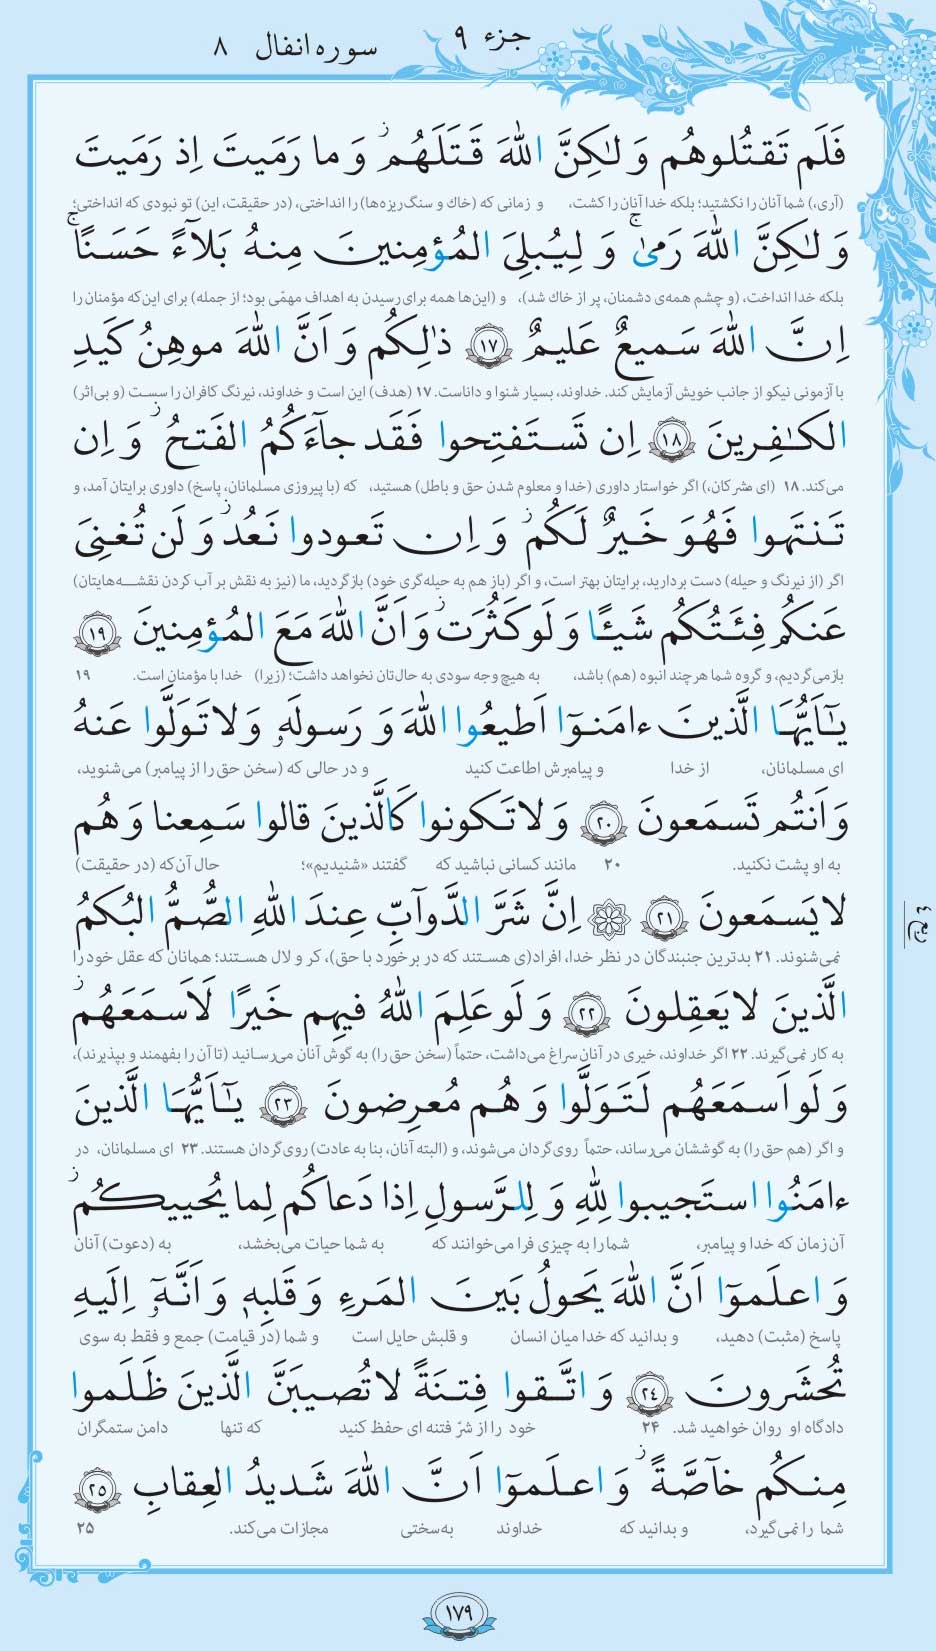 جزء ۹
سوره انفال ۸
فَلَم تَقتُلوهُم وَ لٰكِنَّ اللّٰهَ قَتَلَهُم ۚ وَ ما رَمَيتَ اِذ رَمَيتَ
(آری،) شما آنان را نکشتید؛ بلکه خدا آنان را کشت، و زمانی که (خاك و سنگ‌ریزه‌ها) را انداختی، (در حقیقت، این) تو نبودی که انداختی؛
وَ لٰكِنَّ اللّٰهَ رَمیٰ ۚ وَ لِيُبلِیَ المُؤمِنينَ مِنهُ بَلآءً حَسَنًا ۚ
بلکه خدا انداخت، (و چشم همه‌ی دشمنان، پر از خاك شد)، و (این‌ها همه برای رسیدن به اهداف مهمّی بود؛ از جمله) برای این‌که مؤمنان را
اِنَّ اللّٰهَ سَميعٌ عَليمٌ ۱۷ ذٰلِكُم وَ اَنَّ اللّٰهَ موهِنُ كَيدِ
با آزمونی نیکو از جانب خویش آزمایش کند. خداوند، بسیار شنوا و داناست. ۱۷ (هدف) این است و خداوند، نیرنگ کافران را سست (و بی‌اثر)
الكٰفِرينَ ۱۸ اِن تَستَفتِحوا فَقَد جآءَكُمُ الفَتحُ ۖ وَ اِن
می‌کند. ۱۸ (ای مشرکان،) اگر خواستار داوری (خدا و معلوم شدن حق و باطل) هستید، که (با پیروزی مسلمانان، پاسخ) داوری برایتان آمد، و
تَنتَهوا فَهُوَ خَيرٌ لَكُم ۖ وَ اِن تَعودوا نَعُد ۖ وَ لَن تُغنِیَ
اگر (از نیرنگ و حیله) دست بردارید، برایتان بهتر است، و اگر (باز هم به حیله‌گری خود) بازگردید، ما (نیز به نقش بر آب کردن نقشه‌هایتان)
عَنكُم فِئَتُكُم شَيئًا وَ لَو كَثُرَت ۖ وَ اَنَّ اللّٰهَ مَعَ المُؤمِنينَ ۱۹
بازمی‌گردیم، و گروه شما هرچند انبوه (هم) باشد، به هیچ وجه سودی به حال‌تان نخواهد داشت؛ (زیرا) خدا با مؤمنان است. ۱۹
يٰۤاَيُّهَا الَّذينَ ءامَنوۤا اَطيعُوا اللّٰهَ وَ رَسولَهٗ وَ لا تَوَلَّوا عَنهُ
ای مسلمانان، از خدا و پیامبرش اطاعت کنید و در حالی که (سخن حق را از پیامبر) می‌شنوید،
وَ اَنتُم تَسمَعونَ ۲۰ وَ لا تَكونوا كَالَّذينَ قالوا سَمِعنا وَ هُم
به او پشت نکنید. ۲۰ مانند کسانی نباشید که گفتند «شنیدیم»؛ حال آن‌که (در حقیقت)
لا يَسمَعونَ ۲۱ اِنَّ شَرَّ الدَّوآبِّ عِندَ اللّٰهِ الصُّمُّ البُكمُ
نمی‌شنوند. ۲۱ بدترین جنبندگان در نظر خدا، افراد(ی هستند که در برخورد با حق)، کر و لال هستند؛ همانان که عقل خود را
ربع ٤
الَّذينَ لا يَعقِلونَ ۲۲ وَ لَو عَلِمَ اللّٰهُ فيهِم خَيرًا لَاَسمَعَهُم ۖ
به کار نمی‌گیرند. ۲۲ اگر خداوند، خیری در آنان سراغ می‌داشت، حتماً (سخن حق را) به گوش آنان می‌رسانید (تا آن را بفهمند و بپذیرند)،
وَ لَو اَسمَعَهُم لَتَوَلَّوا وَ هُم مُعرِضونَ ۲۳ يٰۤاَيُّهَا الَّذينَ
و اگر (هم حق را) به گوششان می‌رساند، حتماً روی‌گردان می‌شوند، و (البته آنان، بنا به عادت) روی‌گردان هستند. ۲۳ ای مسلمانان، در
ءامَنُوا استَجيبوا لِلّٰهِ وَ لِلرَّسولِ اِذا دَعاكُم لِما يُحييكُم ۖ
آن زمان که خدا و پیامبر، شما را به چیزی فرا می‌خوانند که به شما حیات می‌بخشد، به (دعوت) آنان
وَ اعلَموۤا اَنَّ اللّٰهَ يَحولُ بَينَ المَرءِ وَ قَلبِهٖ وَ اَنَّهٗۤ اِلَيهِ
پاسخ (مثبت) دهید، و بدانید که خدا میان انسان و قلبش حایل است و شما (در قیامت) جمع و فقط به سوی
تُحشَرونَ ۲۴ وَ اتَّقوا فِتنَةً لا تُصيبَنَّ الَّذينَ ظَلَموا
دادگاه او روان خواهید شد. ۲۴ خود را از شرّ فتنه ای حفظ کنید که تنها دامن ستمگران
مِنكُم خآصَّةً ۖ وَ اعلَموۤا اَنَّ اللّٰهَ شَديدُ العِقابِ ۲۵
شما را نمی‌گیرد، و بدانید که خداوند به‌سختی مجازات می‌کند. ۲۵
۱۷۹